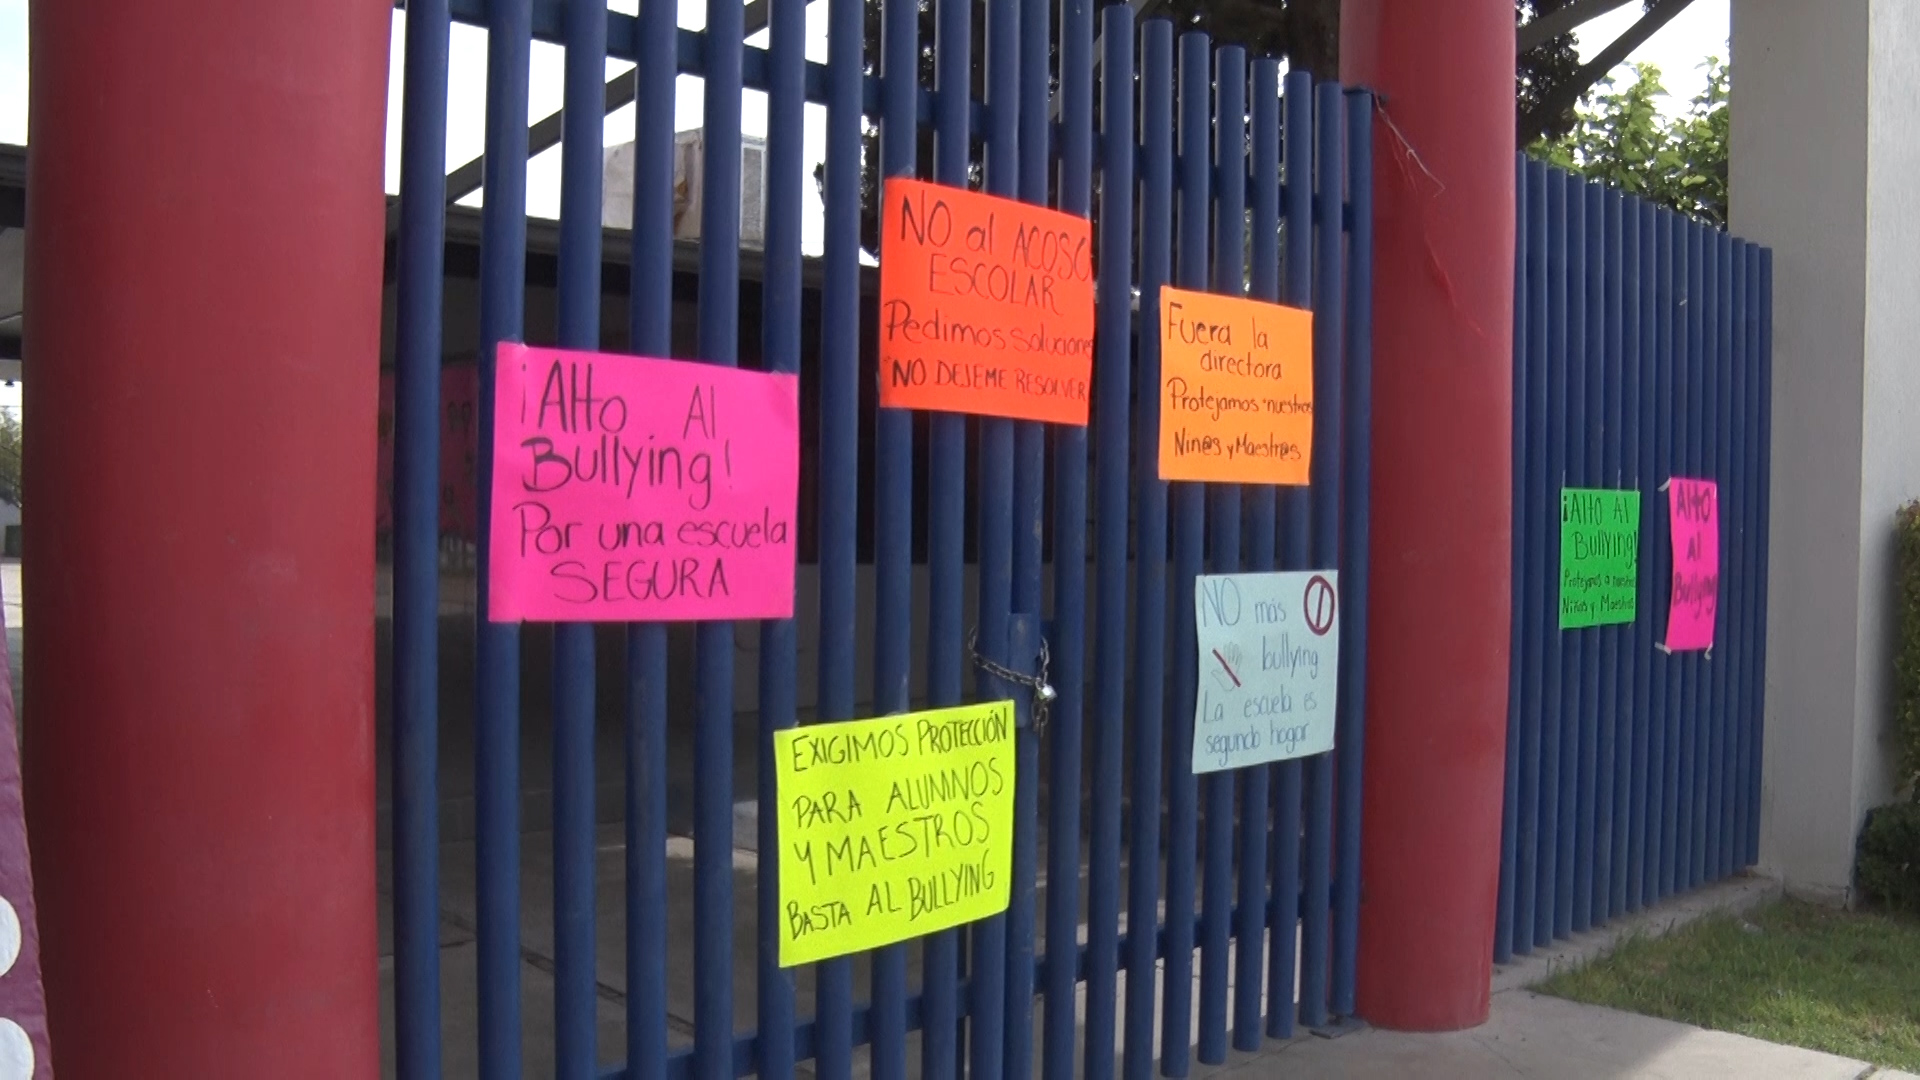 ¡Alto Al
Bullying!
Por una escuela
SEGURA
NO al ACOSO
ESCOLAR
Pedimos soluciones
"NO DEJEME RESOLVER
Fuera la
directora
Protejamos nuestros
Niñ@s y Maestr@s
EXIGIMOS PROTECCIÓN
PARA ALUMNOS
Y MAESTROS
BASTA AL BULLYING
NO más
bullying
La escuela es
segundo hogar
¡Alto Al
Bullying!
Protejamos a nuestros
Niños y Maestros
Alto
al
Bullying